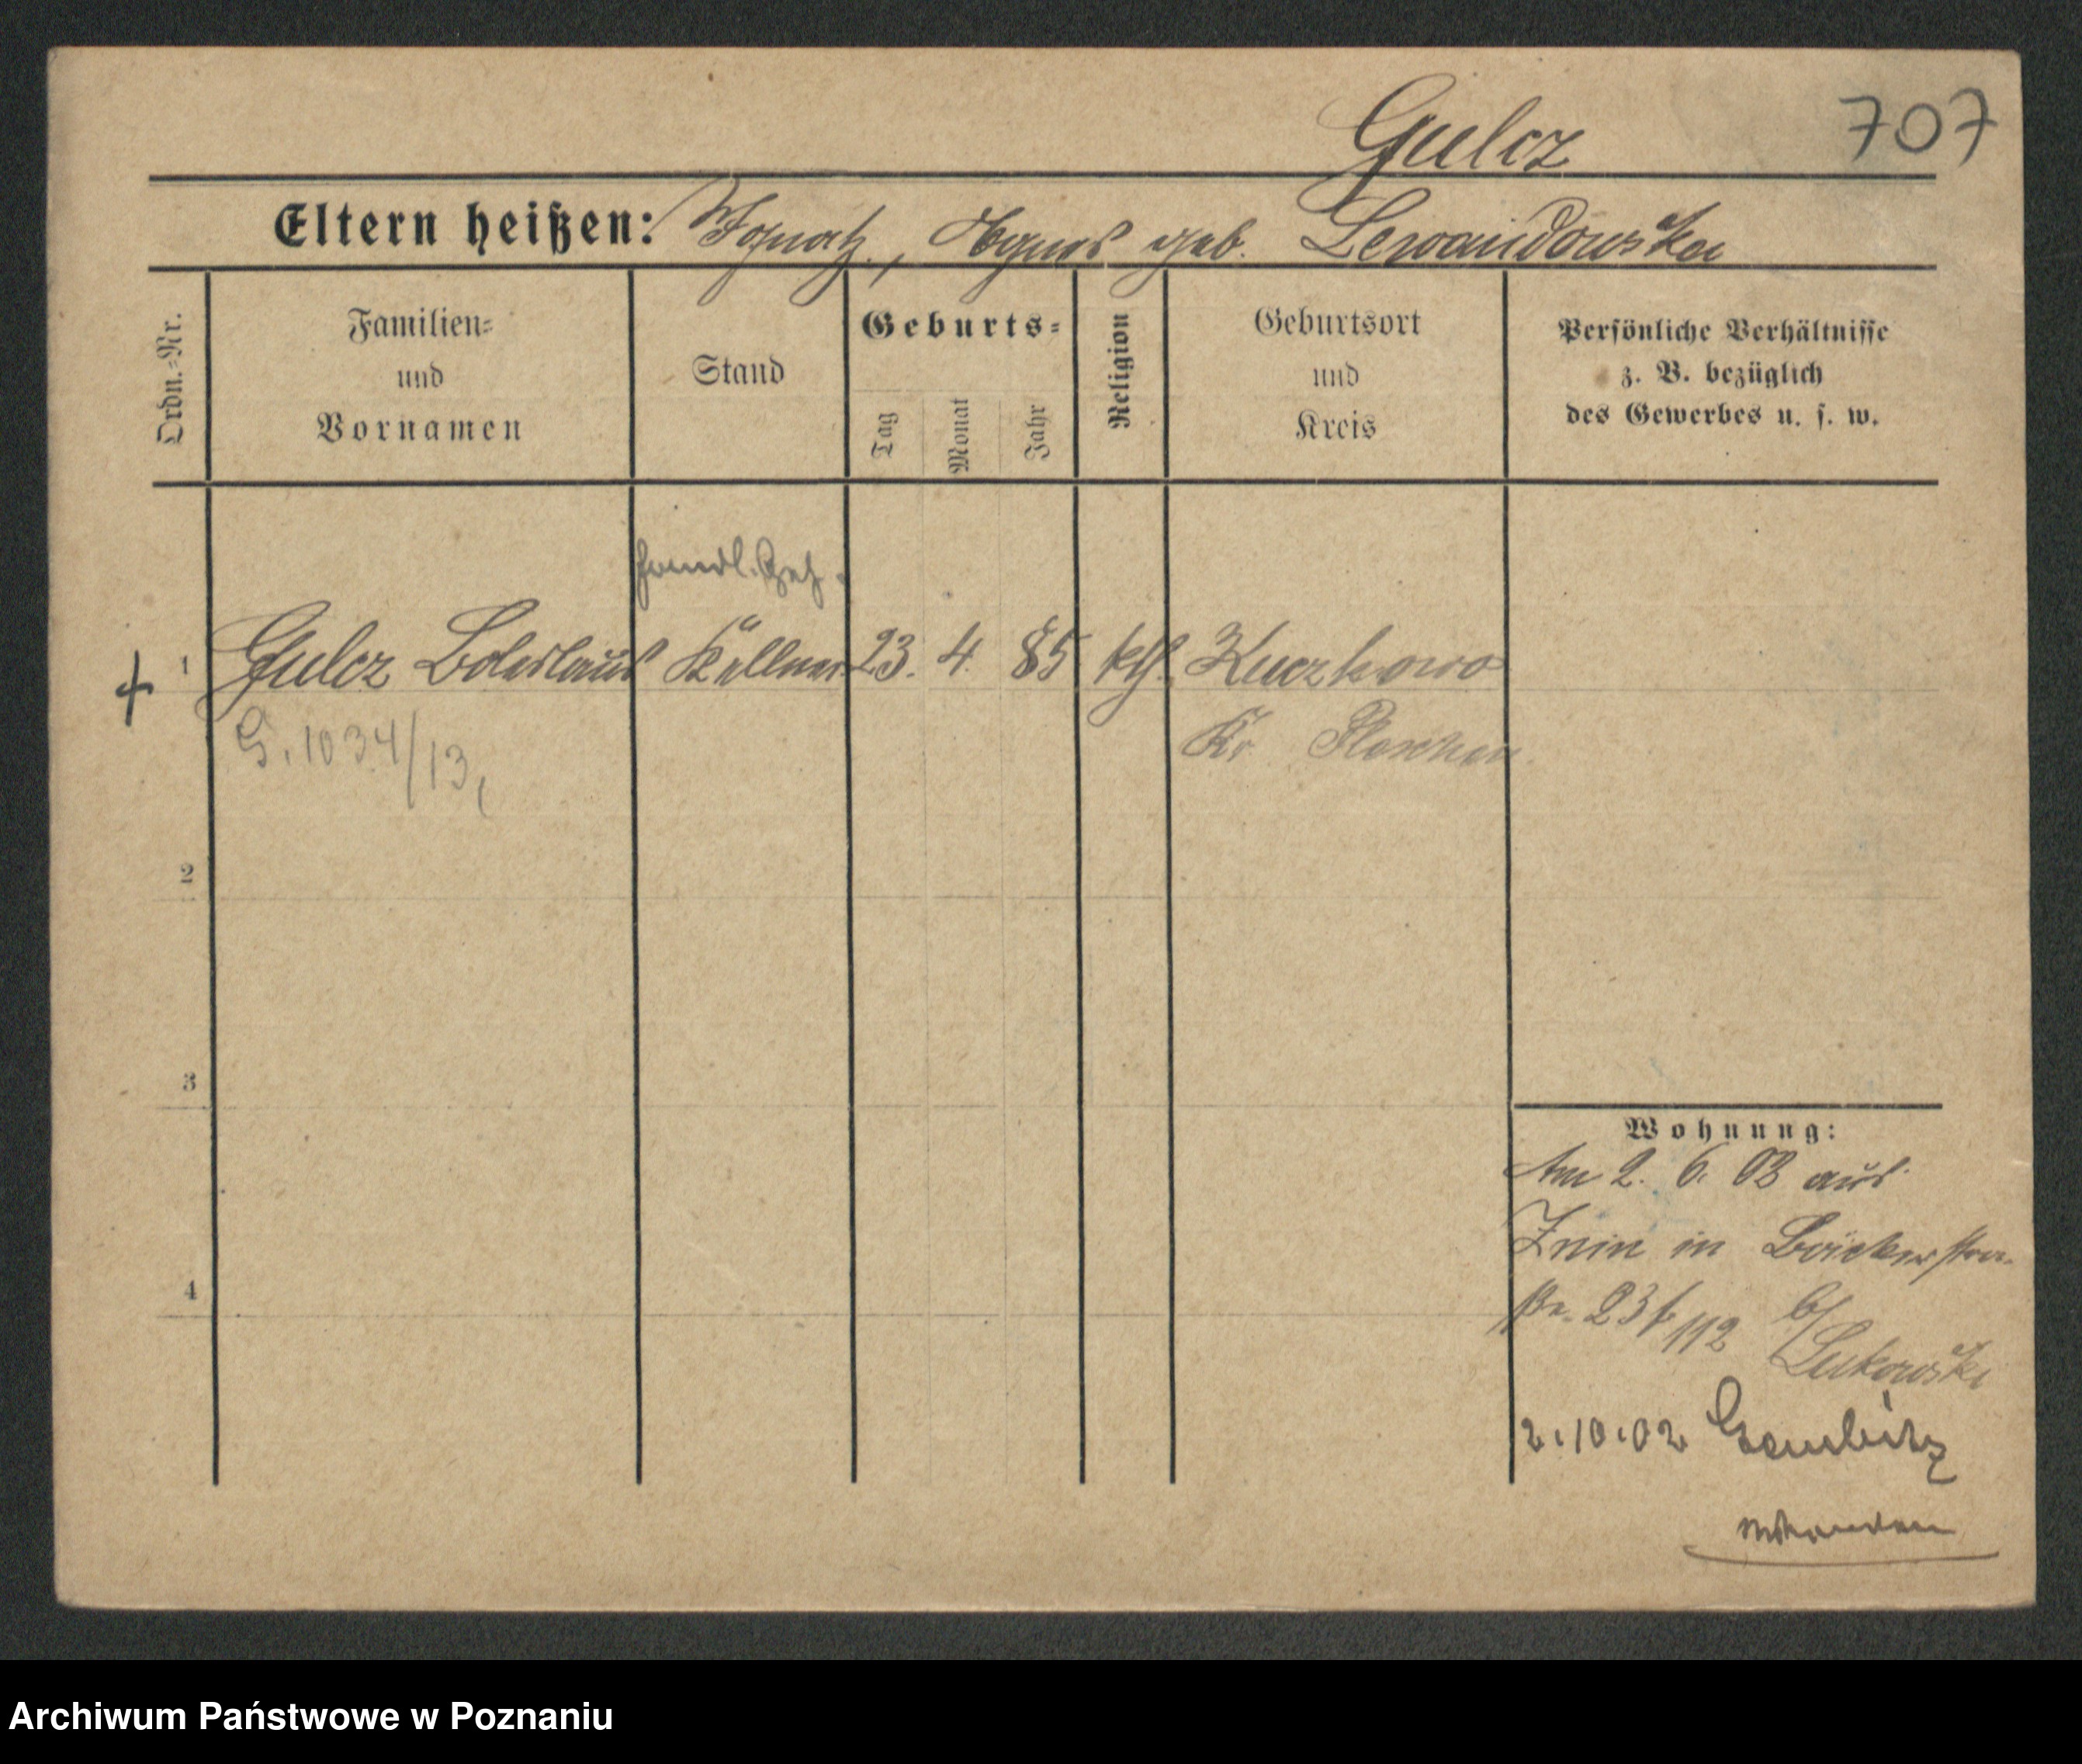 Gulcz 707
Eltern heißen: Ignatz, Agnes geb. Lewandowska
Ordn.-Nr.
Familien-
und
Vornamen
Stand
Geburts-
Tag
Monat
Jahr
Religion
Geburtsort
und
Kreis
Persönliche Verhältnisse
z. B. bezüglich
des Gewerbes u. s. w.
Handl. Geh.
1 Gulcz Boleslaus Kellner 23. 4. 85 kth. Kuczkowo
G. 1034/13,
Kr. Pleschen
2
3
4
Wohnung:
Am 2. 6. 02 aus
Znin in Bäckerstra-
ße. 23 b/
Lukowski
2.10.02 Gembitz